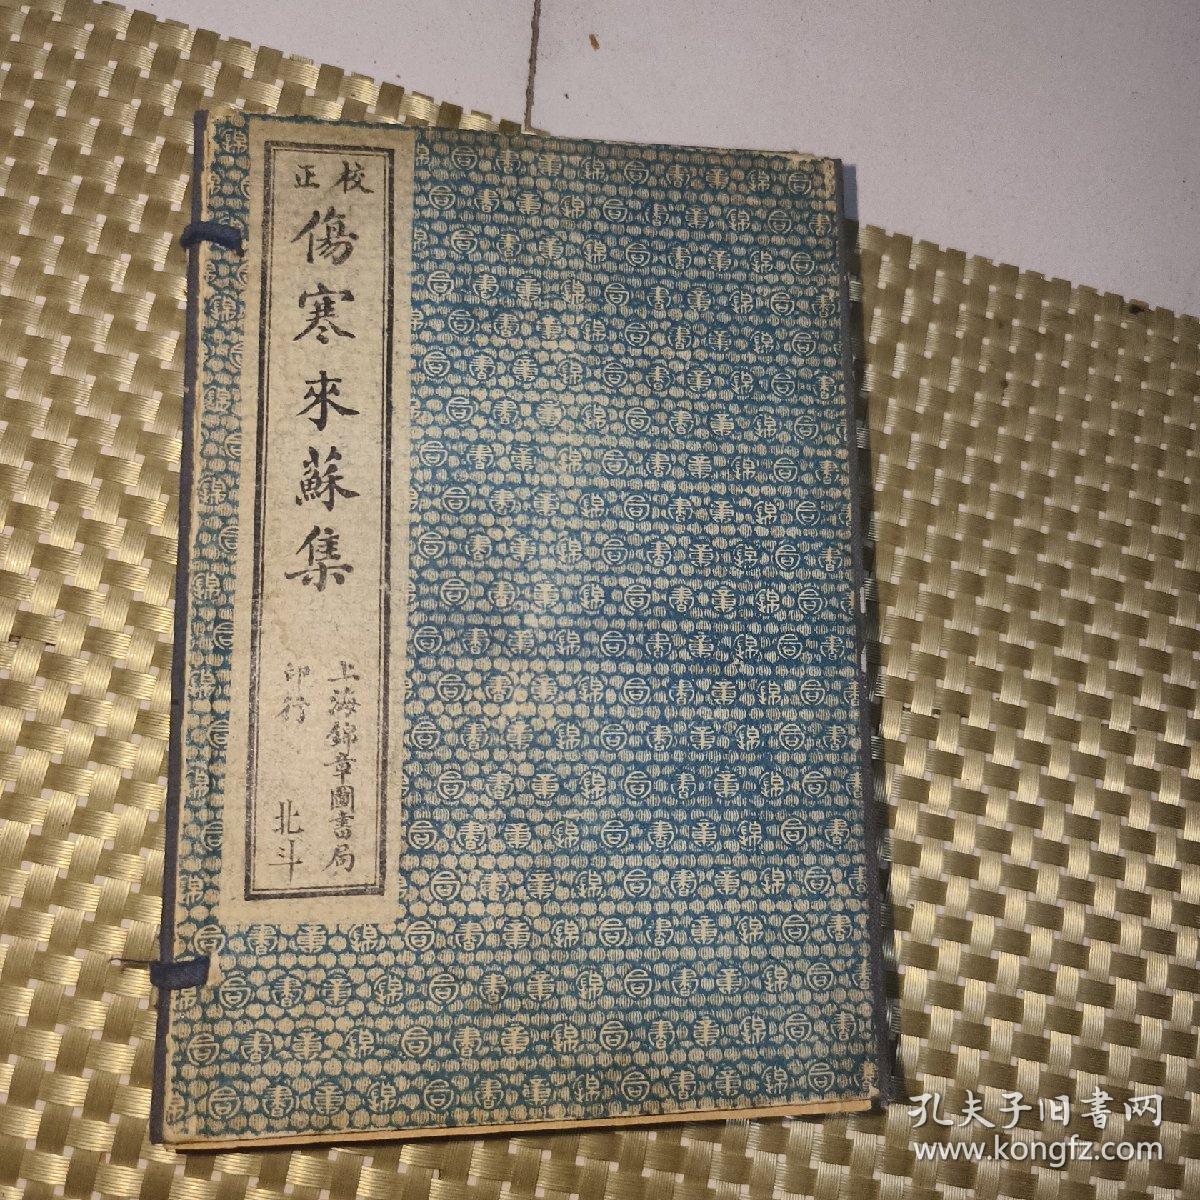 校正
傷寒來蘇集
上海錦章圖書局
印行
北斗
孔夫子旧书网
www.kongfz.com